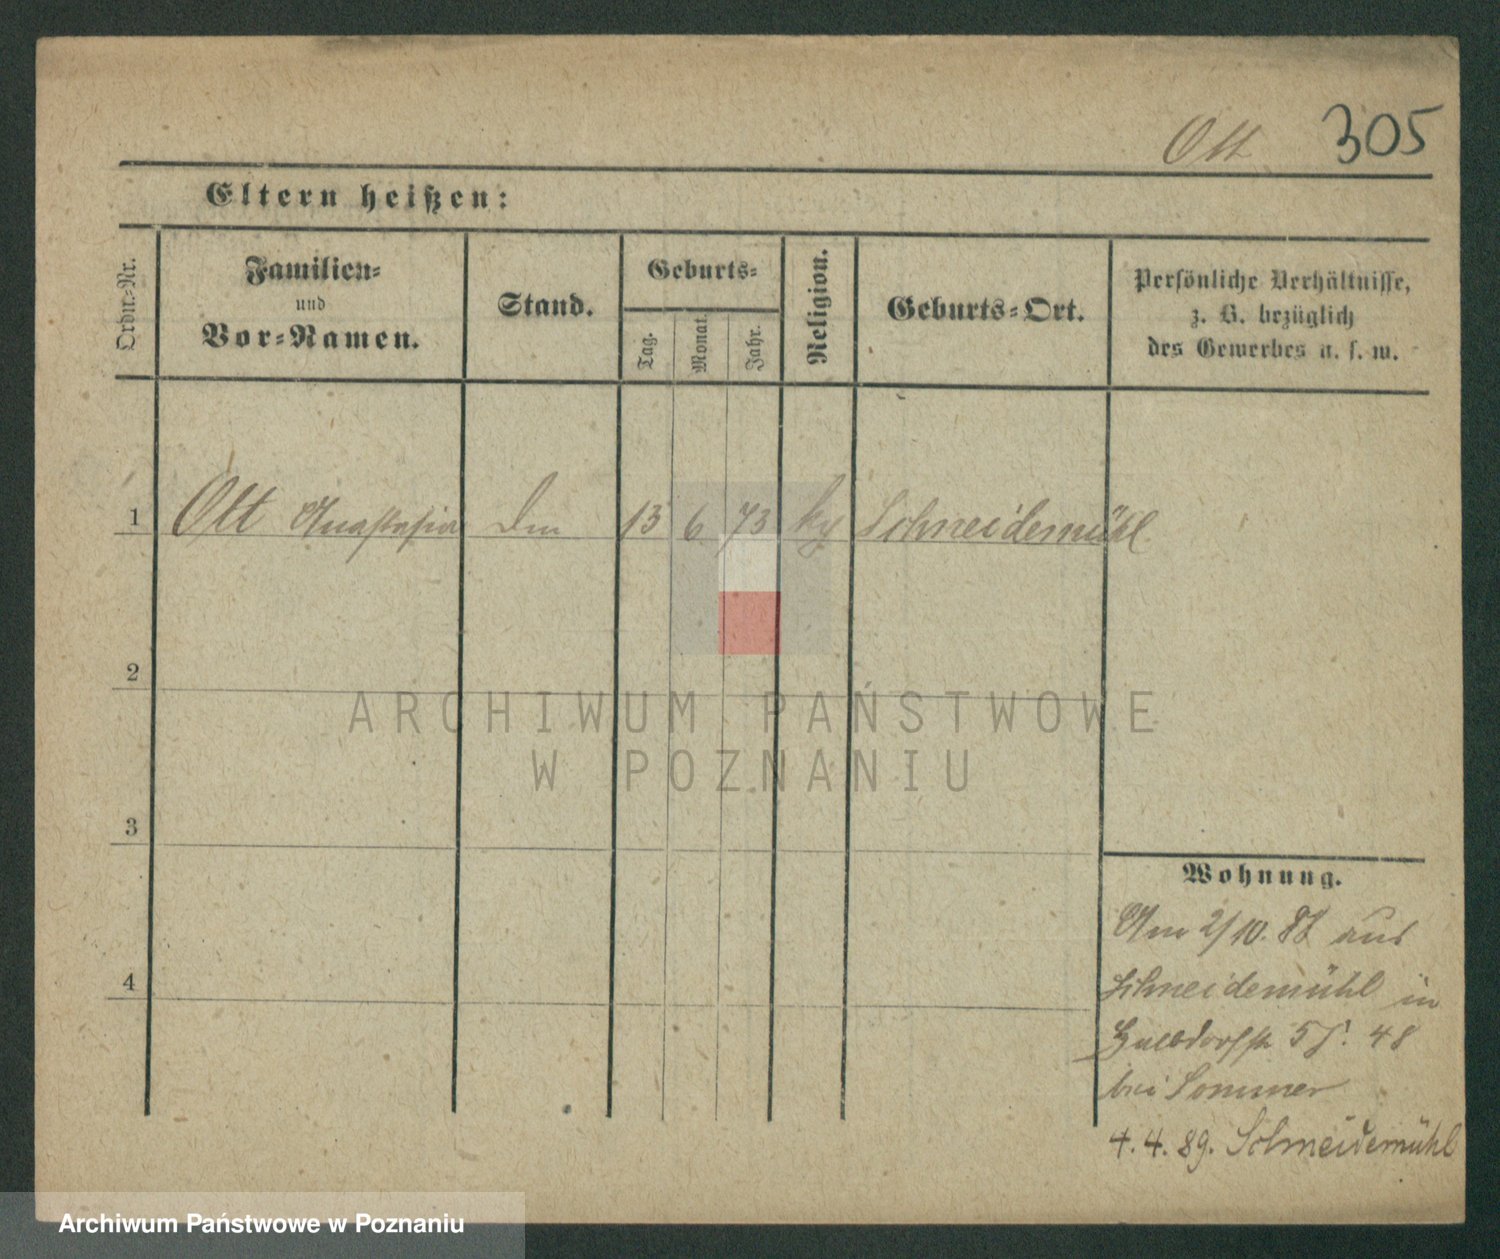 Ott 305
Eltern heißen:
Ordn.-Nr.
Familien-
und
Vor-Namen.
Stand.
Geburts-
Tag.
Monat.
Jahr.
Religion.
Geburts-Ort.
Persönliche Verhältnisse,
z. B. bezüglich
des Gewerbes u. s. w.
1 Ott Anastasia 13 6 73 Schneidemühl
2
ARCHIWUM PAŃSTWOWE
W POZNANIU
3
Wohnung.
4
Am 2/10. 88 aus
Schneidemühl in
48
bei Sommer
4. 4. 89. Schneidemühl
Archiwum Państwowe w Poznaniu